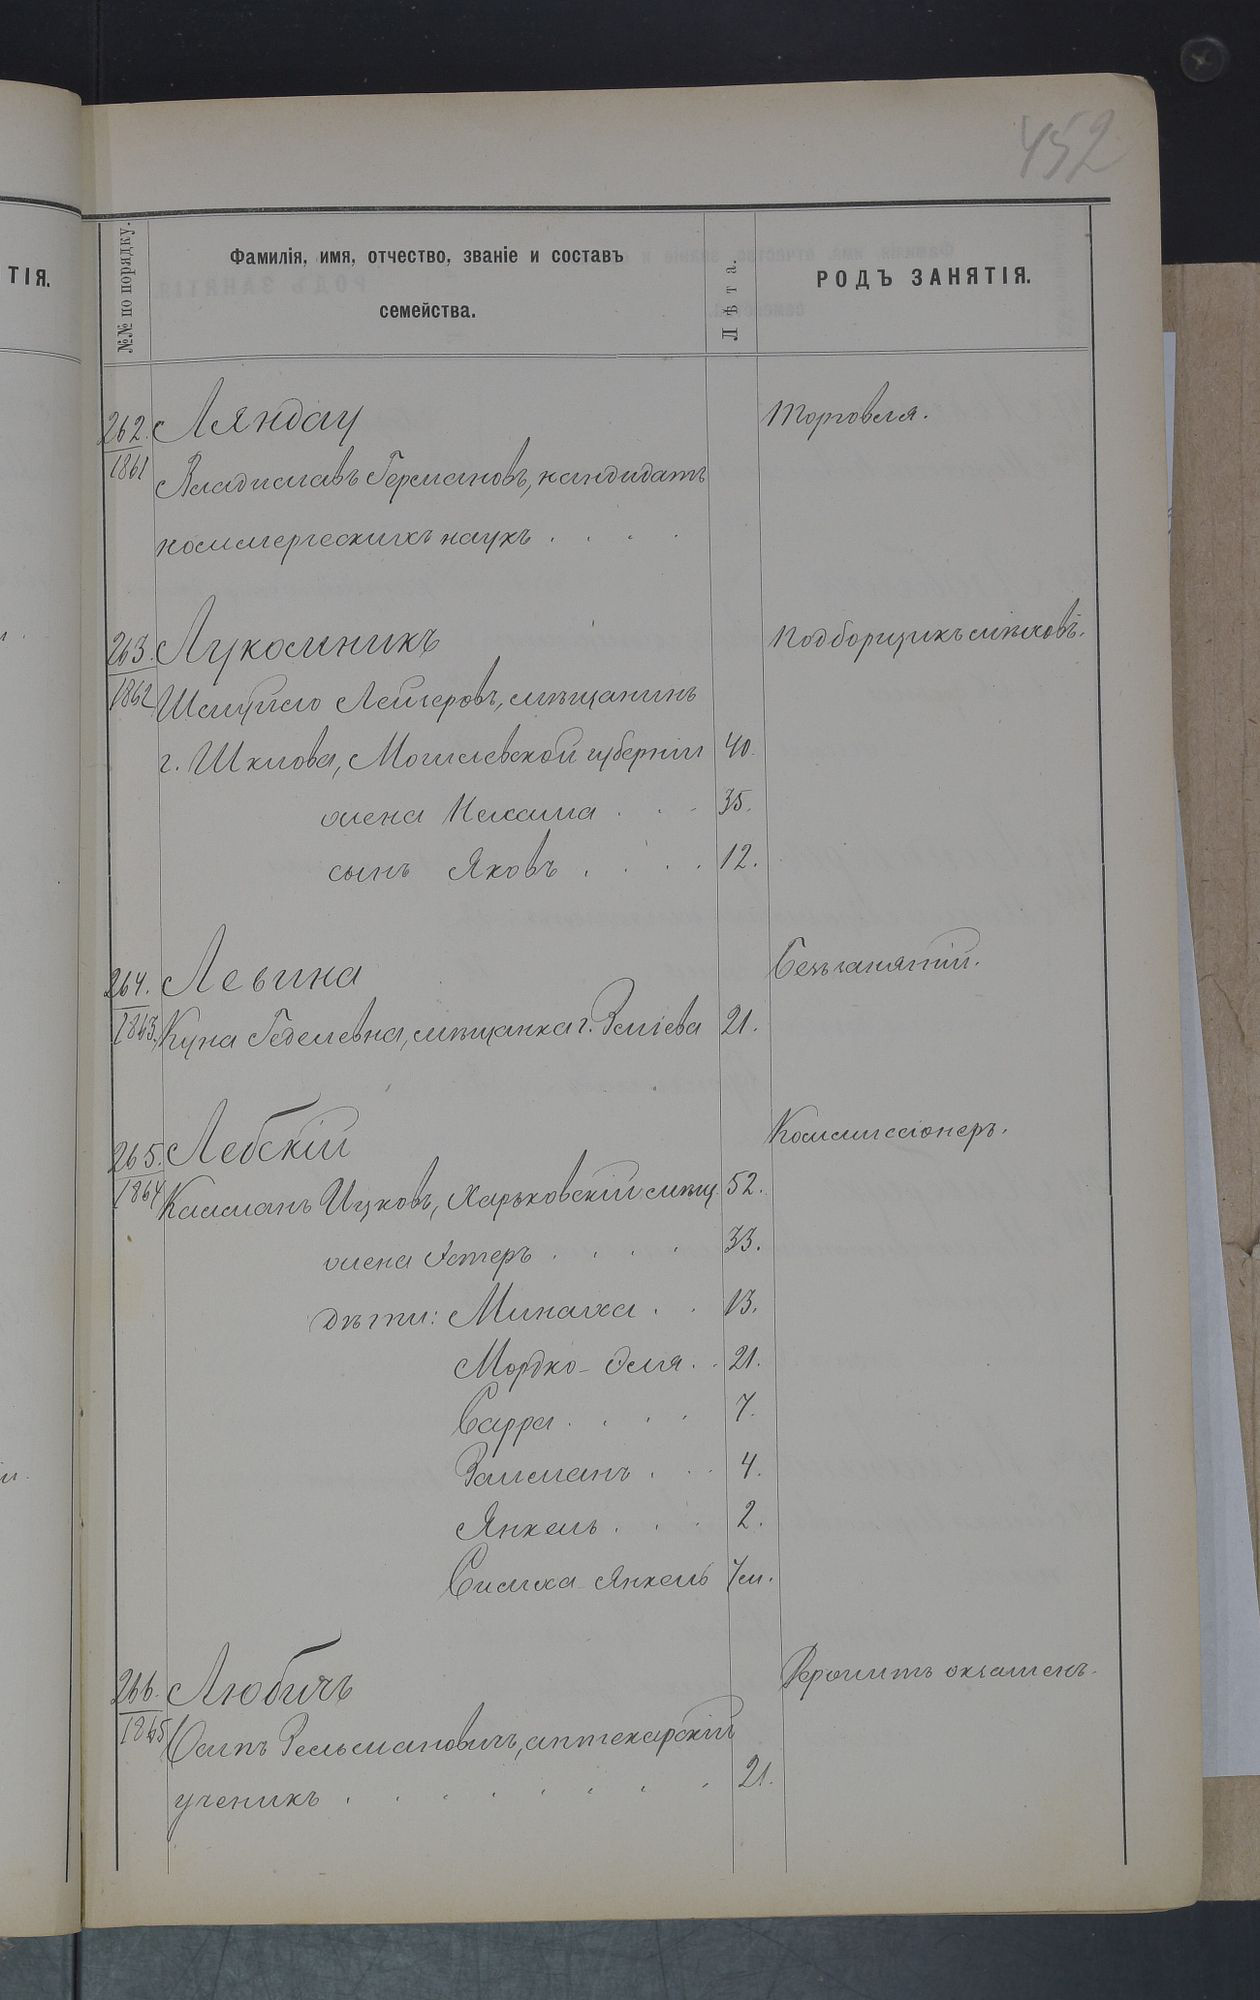 452
ТІЯ.
№№ по порядку.
Фамилія, имя, отчество, званіе и составъ
семейства.
Лѣта.
РОДЪ ЗАНЯТІЯ.
262. Ляндау Торговля.
1861 Владиславъ Германовъ, кандидатъ
коммерческихъ наукъ . . . .
263. Лукомникъ Подборщикъ мѣховъ.
1862 Шмуйло Лейзеровъ, мѣщанинъ
г. Шклова, Могилевской губерніи 40.
жена Нехама . . . 35.
сынъ Яковъ . . . . 12.
264. Левина Безъ занятій.
1863. Куна Геделевна, мѣщанка г. Зміева 21.
265. Лебскій Коммиссіонеръ.
1864 Калманъ Ицковъ, Харьковскій мѣщ. 52.
жена Эстеръ . . . . 33.
дѣти: Минахи . . 13.
Мордко-Эля . . 21.
Сарра . . . . 7.
Залманъ . . . 4.
Янкель . . . 2.
Симха-Янкель 7 м.
266. Любичъ Держитъ экзаменъ.
1865 Осипъ Зельмановичъ, аптекарскій
ученикъ . . . . . . . . 21.